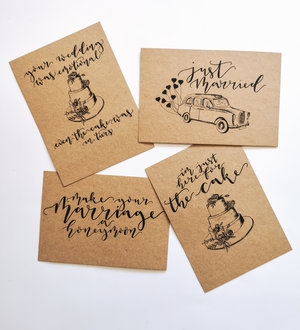 your wedding
was emotional
even the cake was
in tiers
just
Married
make your
Marriage
a
honeymoon
im just
here for
the cake